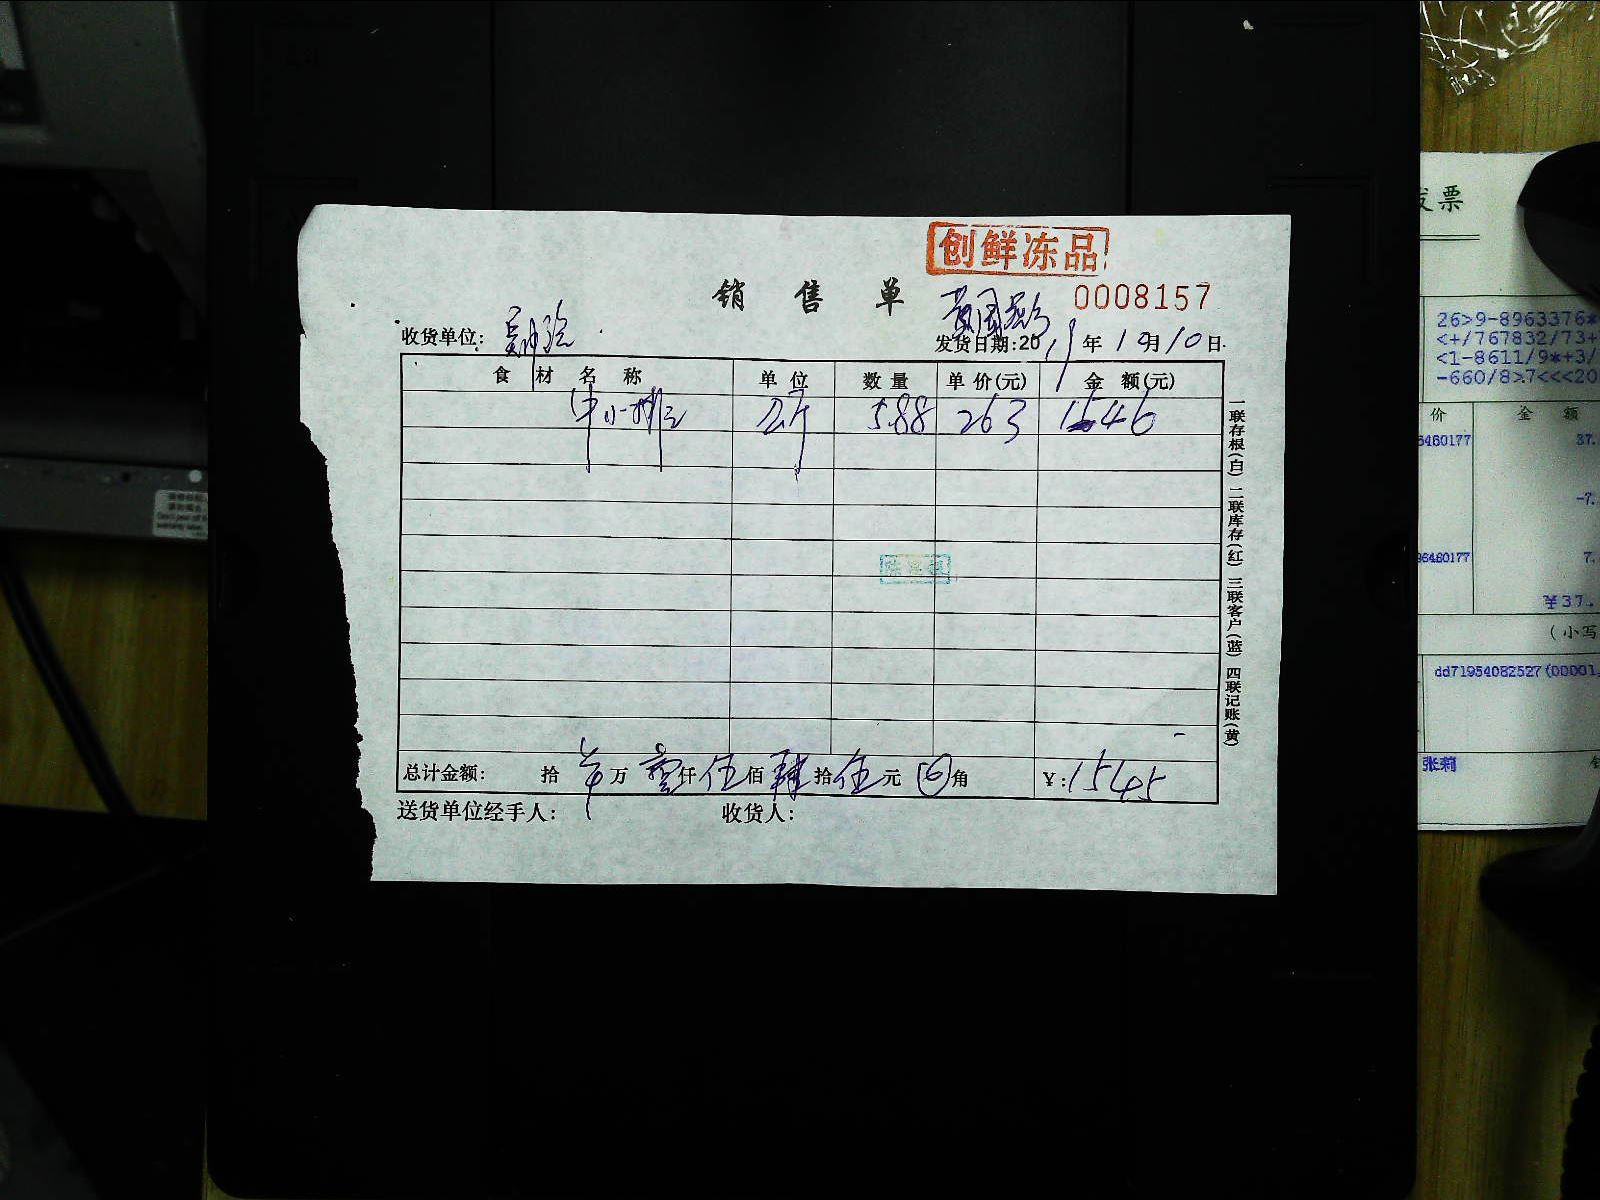 创鲜冻品
销 售 单
0008157
收货单位:
发货日期:2019年10月10日
食 材 名 称 单 位 数 量 单 价(元) 金 额(元)
牛小排 公斤 5.88 263 1546
总计金额: 拾 万 仟伍佰肆拾伍元 角 ¥:1545
送货单位经手人: 收货人:
一联存根(白) 二联库存(红) 三联客户(蓝) 四联记账(黄)
发票
26>9-8963376*
<+/767832/73+
<1-8611/9*+3/
-660/8>7<<<20
价 金 额
6460177 37.
-7.
96460177 7.
¥37.
(小写
dd71954082527(00001,
张莉